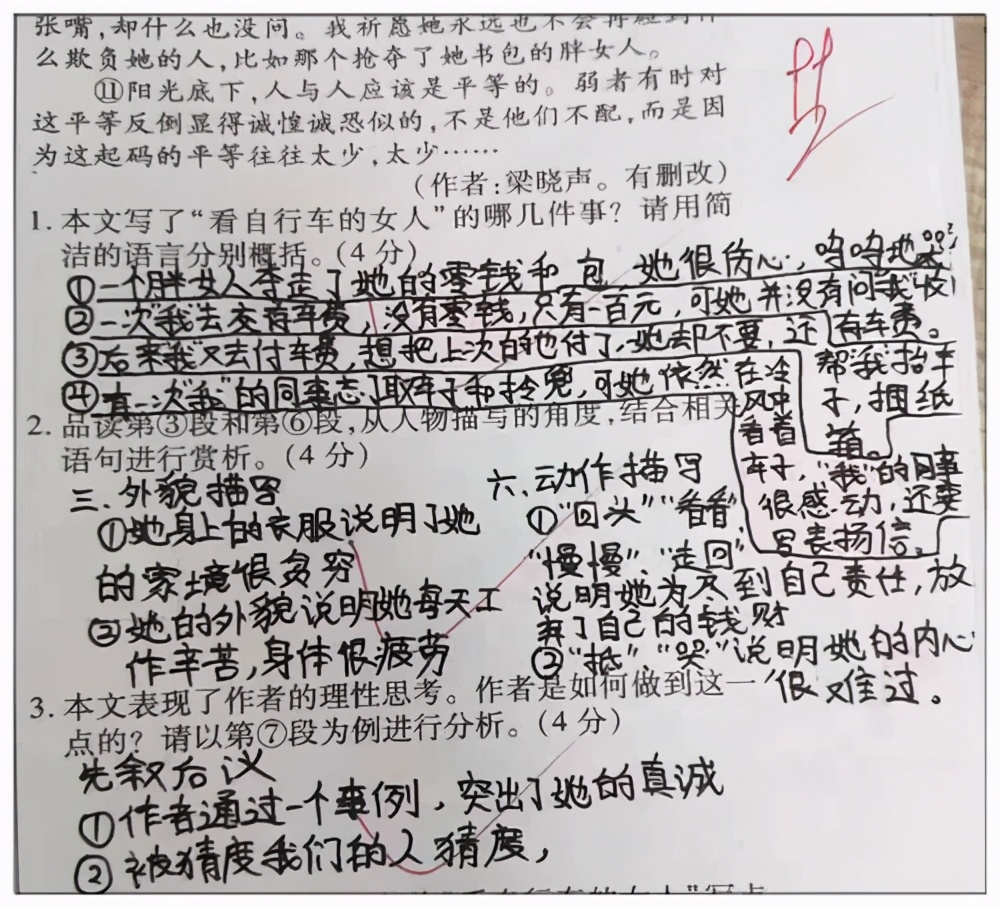 张嘴,却什么也没问。我祈愿她永远也不会再碰到什
么欺负她的人,比如那个抢夺了她书包的胖女人。
⑪阳光底下,人与人应该是平等的。弱者有时对
这平等反倒显得诚惶诚恐似的,不是他们不配,而是因
为这起码的平等往往太少,太少……
(作者:梁晓声。有删改)
1.本文写了“看自行车的女人”的哪几件事?请用简
洁的语言分别概括。(4分)
①一个胖女人夺走了她的零钱和包,她很伤心,呜呜地哭
②一次“我”去交存车费,没有零钱,只有一百元,可她并没有问“我”收
有车费。
③后来“我”又去付车费,想把上次的也付了,她却不要,还
帮“我”抬车
子,捆纸
箱。
④有一次“我”的同事忘了取车子和拎兜,可她依然在冷
风中
看着
车子,“我”的同事
很感动,还要
写表扬信。
2.品读第③段和第⑥段,从人物描写的角度,结合相关
语句进行赏析。(4分)
三、外貌描写
①她身上的衣服说明了她
的家境很贫穷
②她的外貌说明她每天工
作辛苦,身体很疲劳
六、动作描写
①“回头”“看看”
“慢慢”、“走回”
说明她为尽到自己责任,放
弃了自己的钱财
②“抵”、“哭”说明她的内心
很难过。
3.本文表现了作者的理性思考。作者是如何做到这一
点的?请以第⑦段为例进行分析。(4分)
先叙后议
①作者通过一个事例,突出了她的真诚
②被猜度我们的人猜度,